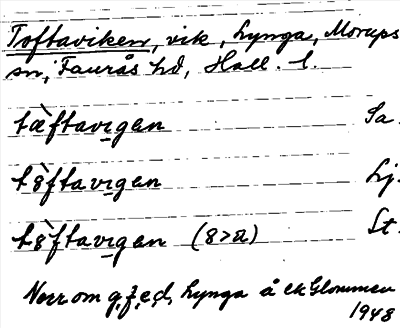 Toftaviken, vik, Lynga, Morups
sn, Faurås hd, Hall. l.
tæ̀ftavıgen Sa.
tȣ̀ftavıgen Lj.
tȣ̀ftavıgen (ȣ>ɷ) St.
Norr om Lynga å ek Glommen
1948